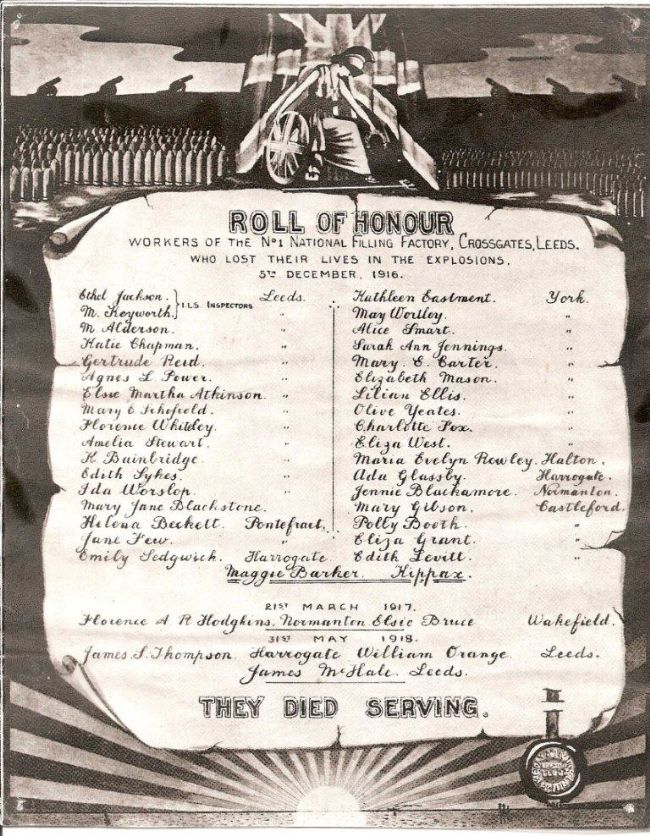 ROLL OF HONOUR
WORKERS OF THE No1 NATIONAL FILLING FACTORY, CROSSGATES, LEEDS.
WHO LOST THEIR LIVES IN THE EXPLOSIONS,
5TH DECEMBER, 1916.
Ethel Jackson. } I.L.S. INSPECTORS Leeds.
M. Keyworth. "
M Alderson. "
Katie Chapman. "
Gertrude Reid. "
Agnes L. Power. "
Elsie Martha Atkinson. "
Mary E Schofield. "
Florence Whiteley "
Amelia Stewart. "
K Bainbridge. "
Edith Sykes. "
Ida Worslop. "
Mary Jane Blackstone. "
Helena Beckett. Pontefract.
Jane Few. "
Emily Sedgwick. Harrogate
Kathleen Eastment. York.
May Wortley. "
Alice Smart. "
Sarah Ann Jennings. "
Mary. E. Carter. "
Elizabeth Mason. "
Lilian Ellis. "
Olive Yeates. "
Charlotte Fox. "
Eliza West. "
Maria Evelyn Rowley. Halton.
Ada Glassby. Harrogate.
Jennie Blackamore. Normanton.
Mary Gibson. Castleford.
Polly Booth. "
Eliza Grant. "
Edith Levitt. "
Maggie Barker. Kippax.
21ST MARCH 1917.
Florence A. R Hodgkins. Normanton Elsie Bruce Wakefield.
31ST MAY 1918.
James S. Thompson. Harrogate William Orange Leeds.
James McHale. Leeds.
THEY DIED SERVING.